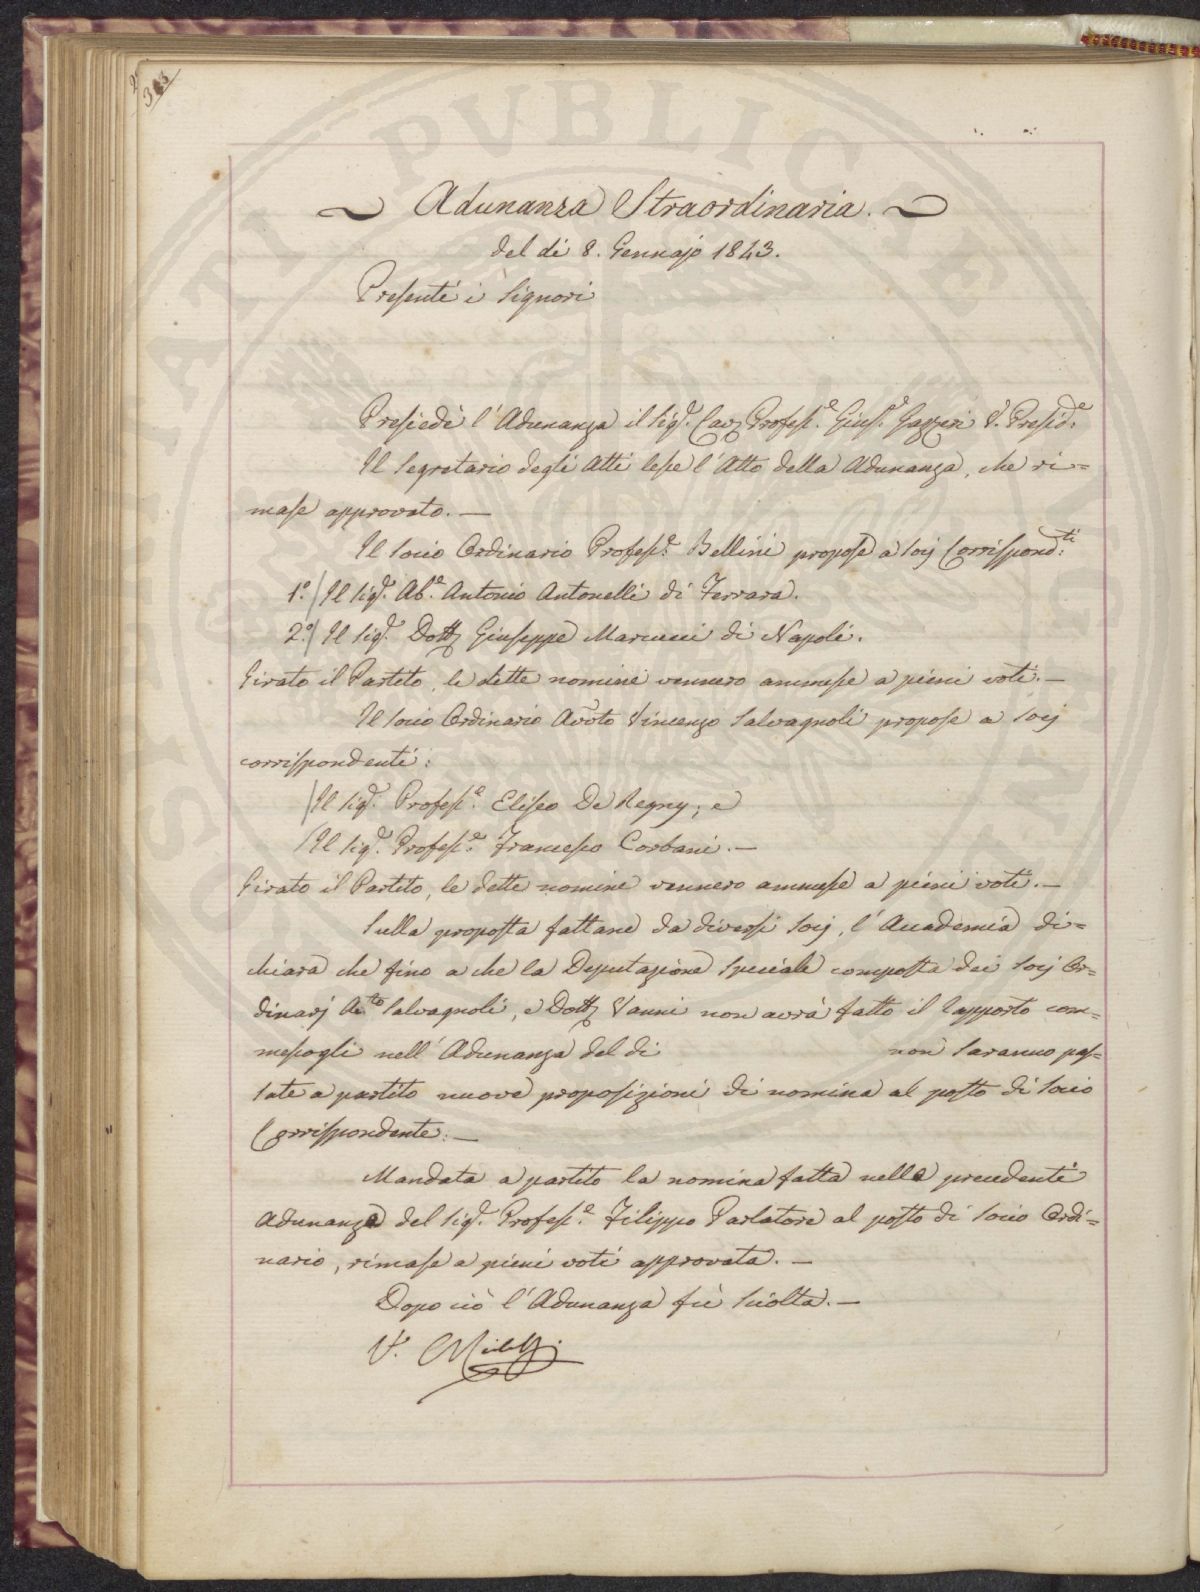 313
Adunanza Straordinaria.
del dì 8. Gennajo 1843.
Presenti i Signori
Presiedè l'Adunanza il Sig.e Cav. Profess.e Gius.e Gazzeri V. Presid.e
Il Segretario degli Atti lesse l'Atto della Adunanza, che ri=
mase approvato. —
Il Socio Ordinario Profess.e Bellini propose a Socj Corrispond.ti
1.° / Il Sig.e Ab.e Antonio Antonelli di Ferrara.
2.° / Il Sig.e Dott. Giuseppe Marcucci di Napoli.
Girato il Partito, le dette nomine vennero ammesse a pieni voti. —
Il Socio Ordinario Avv.to Vincenzo Salvagnoli propose a Socj
corrispondenti:
/ Il Sig.e Profess.e Eliseo De Regny; e
/ Il Sig.e Profess.e Francesco Corbani. —
Girato il Partito, le dette nomine vennero ammesse a pieni voti. —
Sulla proposta fattane da diversi Socj, l'Accademia di=
chiara che fino a che la Deputazione Speciale composta dei Socj Or=
dinarj Av.to Salvagnoli, e Dott. Vanni non avrà fatto il rapporto com=
messogli nell'Adunanza del dì non saranno pas=
sate a partito nuove proposizioni di nomina al posto di Socio
Corrispondente. —
Mandata a partito la nomina fatta nella precedente
Adunanza del Sig.e Profess.e Filippo Parlatore al posto di Socio Ordi=
nario, rimase a pieni voti approvata. —
Dopo ciò l'Adunanza fù sciolta. —
V.
PUBLICAE